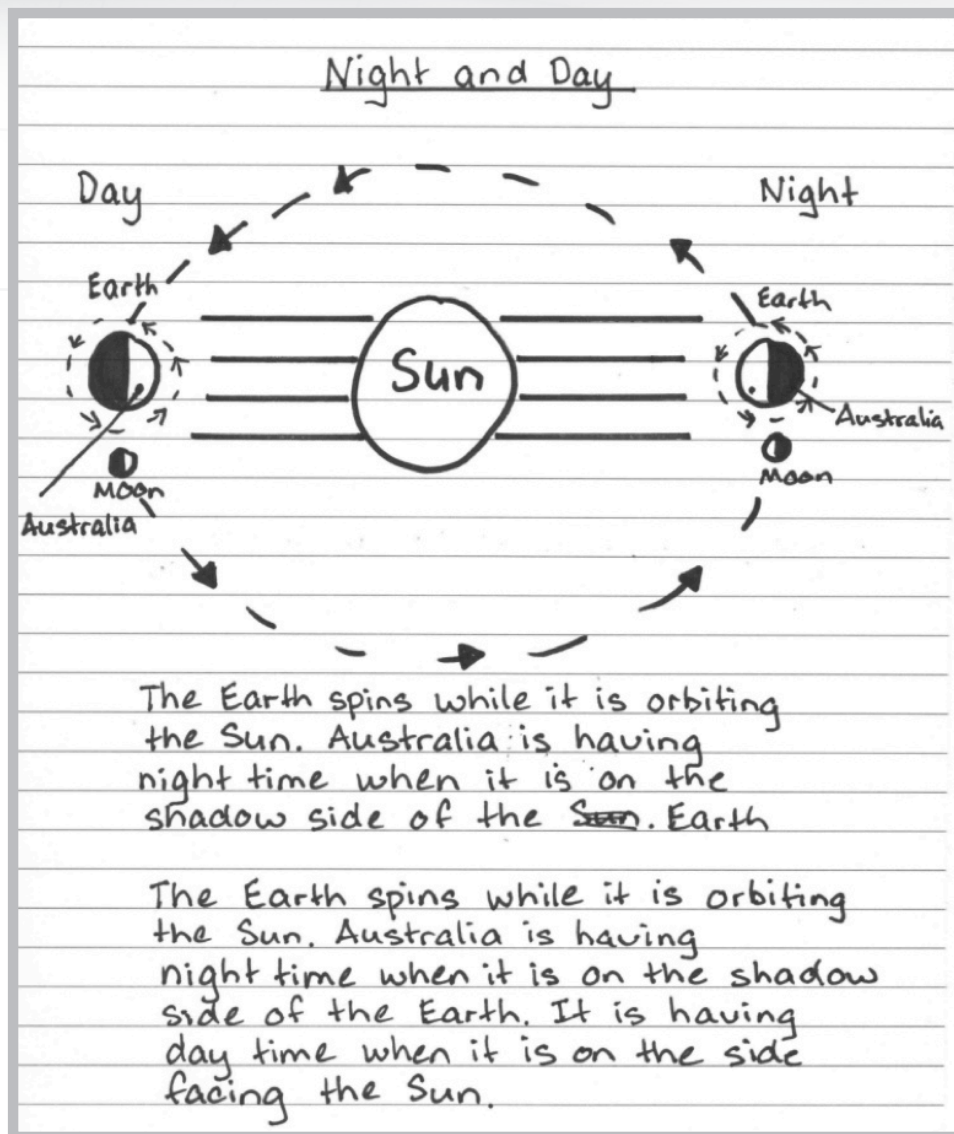 Night and Day
Day
Night
Earth
Earth
Sun
Australia
Moon
Moon
Australia
The Earth spins while it is orbiting
the Sun. Australia is having
night time when it is on the
shadow side of the Sun. Earth
The Earth spins while it is orbiting
the Sun. Australia is having
night time when it is on the shadow
side of the Earth. It is having
day time when it is on the side
facing the Sun.